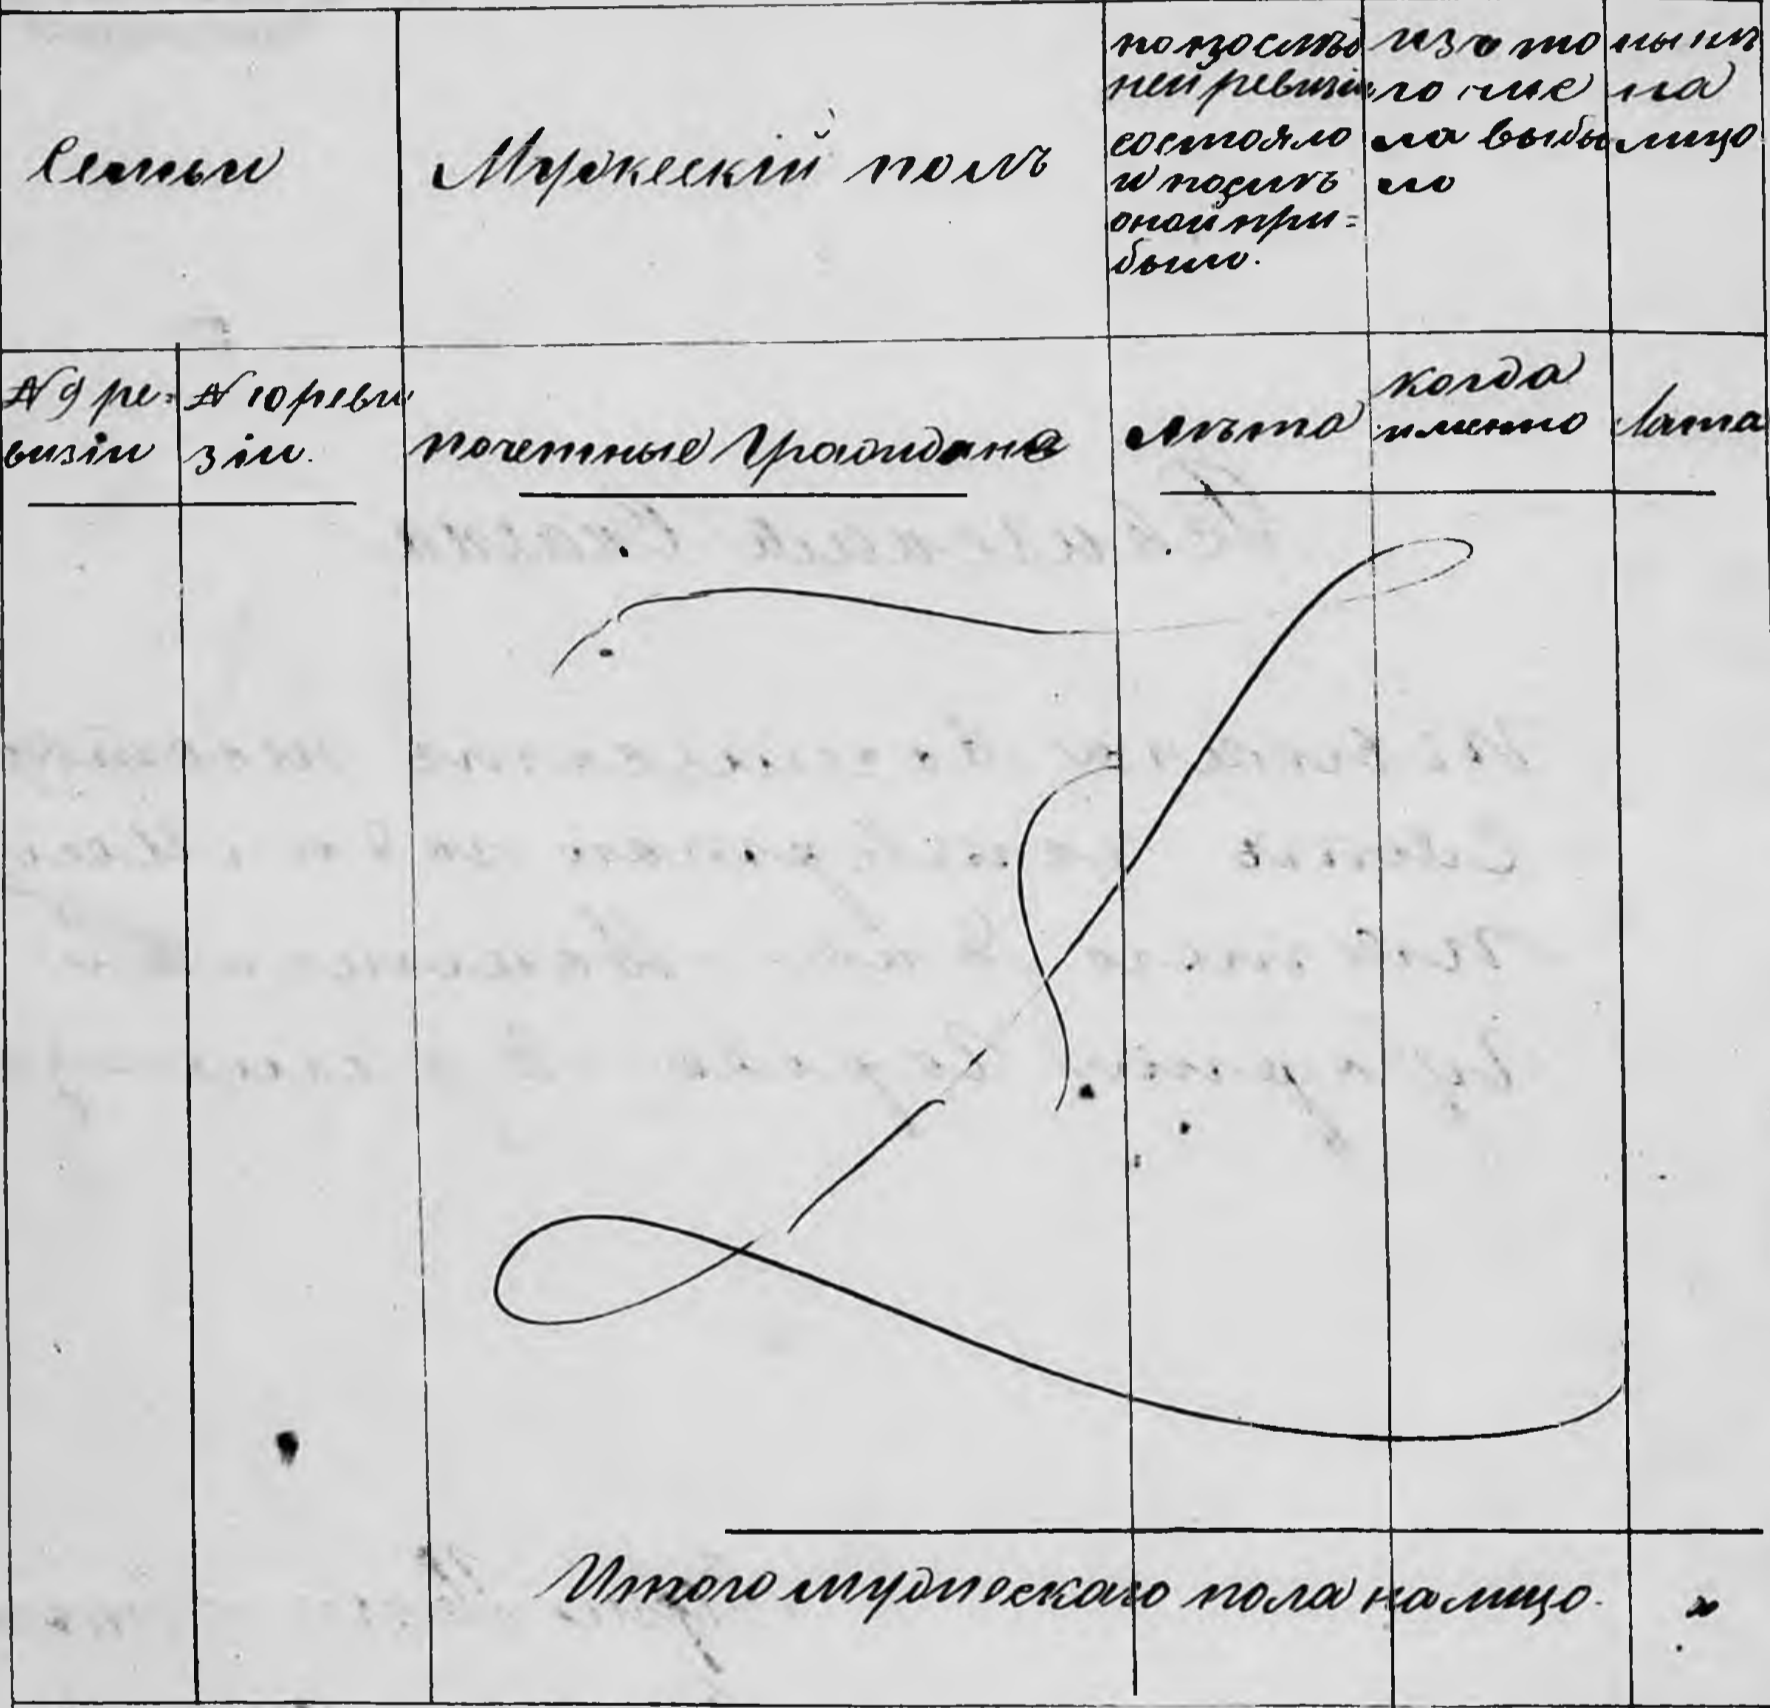 Семьи
Мужескій полъ
по послѣд
ней ревизіи
состояло
и послѣ
оной при=
было.
изъ то
го чис
ла выбы
ло
нынѣ
на
лицо
№ 9 ре=
визіи
№ 10 реви
зіи.
почетные Граждане
лѣта
когда
именно
Лѣта
Итого мужескаго пола налицо. "